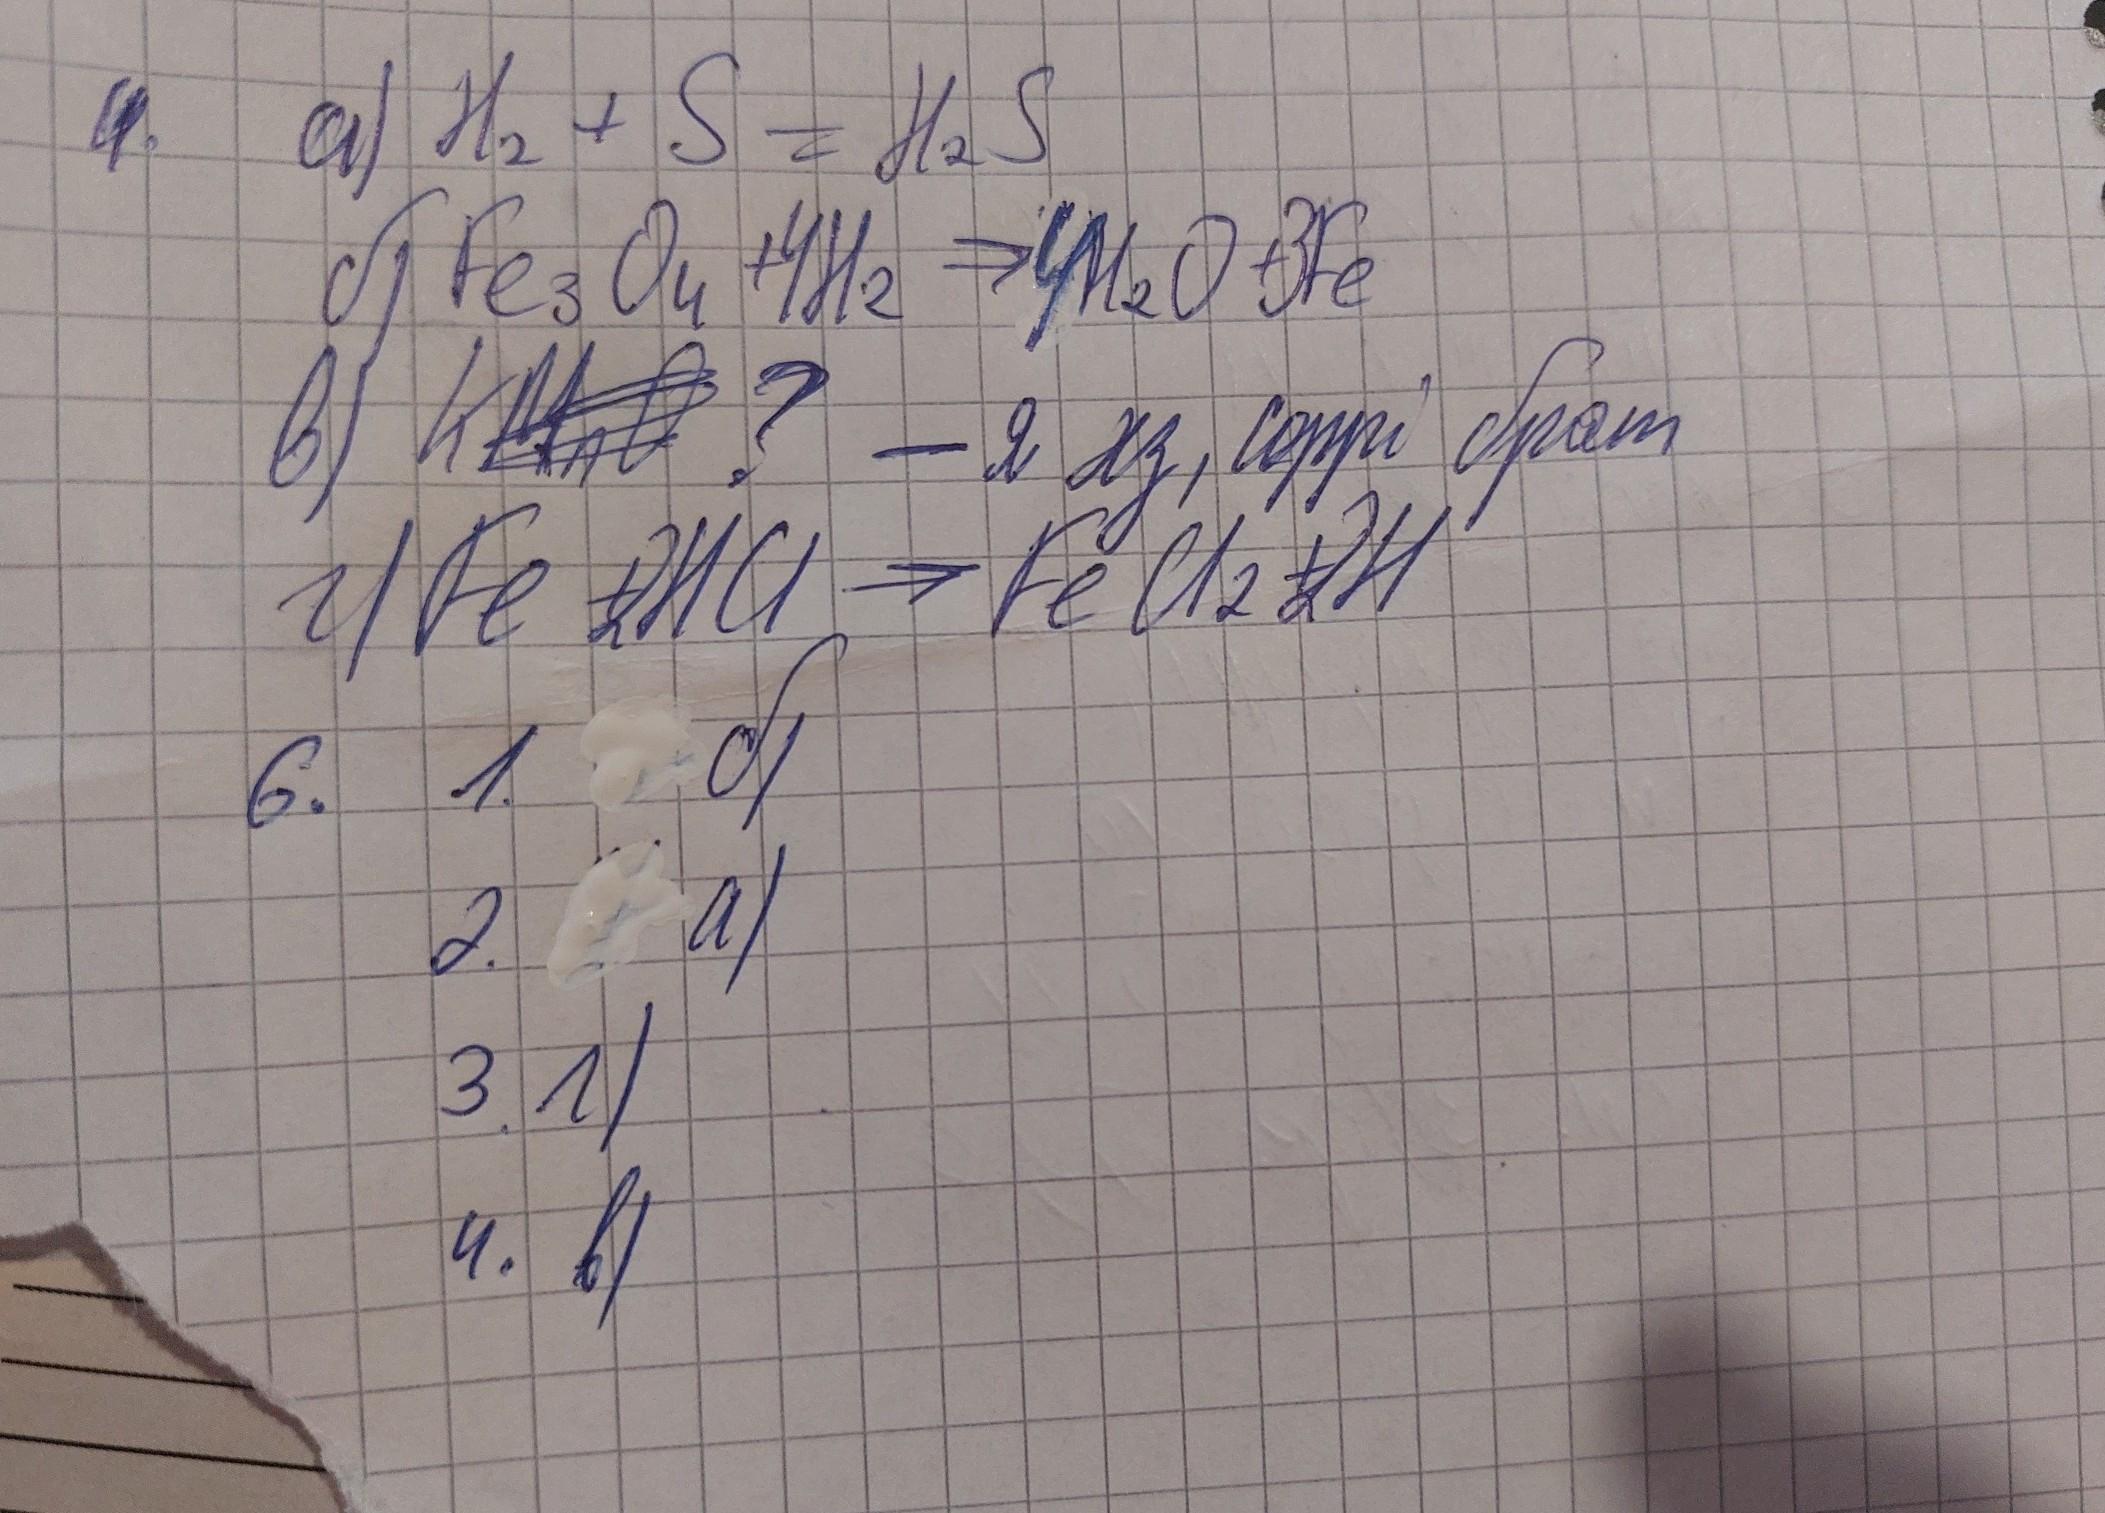 4. а) H₂ + S = H₂S
б) Fe₃O₄ + 4H₂ ⇒ 4H₂O + 3Fe
в) K ? – я хз, сорри брат
г) Fe + 2HCl ⇒ FeCl₂ + 2H
6. 1. б)
2. а)
3. г)
4. в)